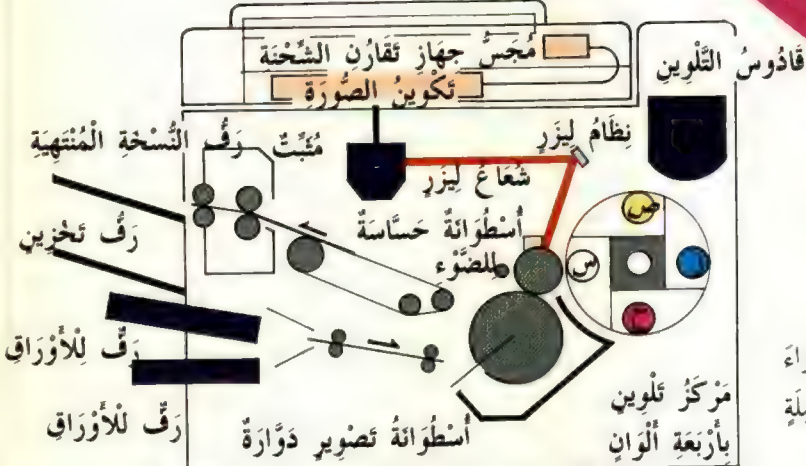 مُجَسُّ جِهَازِ تَقَارُنِ الشِّحْنَة
تَكْوِينُ الصُّورَةِ
قَادُوسُ التَّلْوِينِ
نِظَامُ لِيزَرٍ
مُثَبِّتٌ
رَفُّ النُّسْخَةِ الْمُنْتَهِيَةِ
شُعَاعُ لِيزَرٍ
أُسْطُوَانَةٌ حَسَّاسَةٌ
لِلضَّوْء
ص
س
م
رَفُّ تَخْزِينٍ
رَفٌّ لِلْأَوْرَاقِ
رَفٌّ لْلأَوْرَاقِ
أُسْطُوَانَةُ تَصْوِيرٍ دَوَّارَةٌ
مَرْكَزُ تَلْوِينٍ
بِأَرْبَعَةِ أَلْوَانٍ